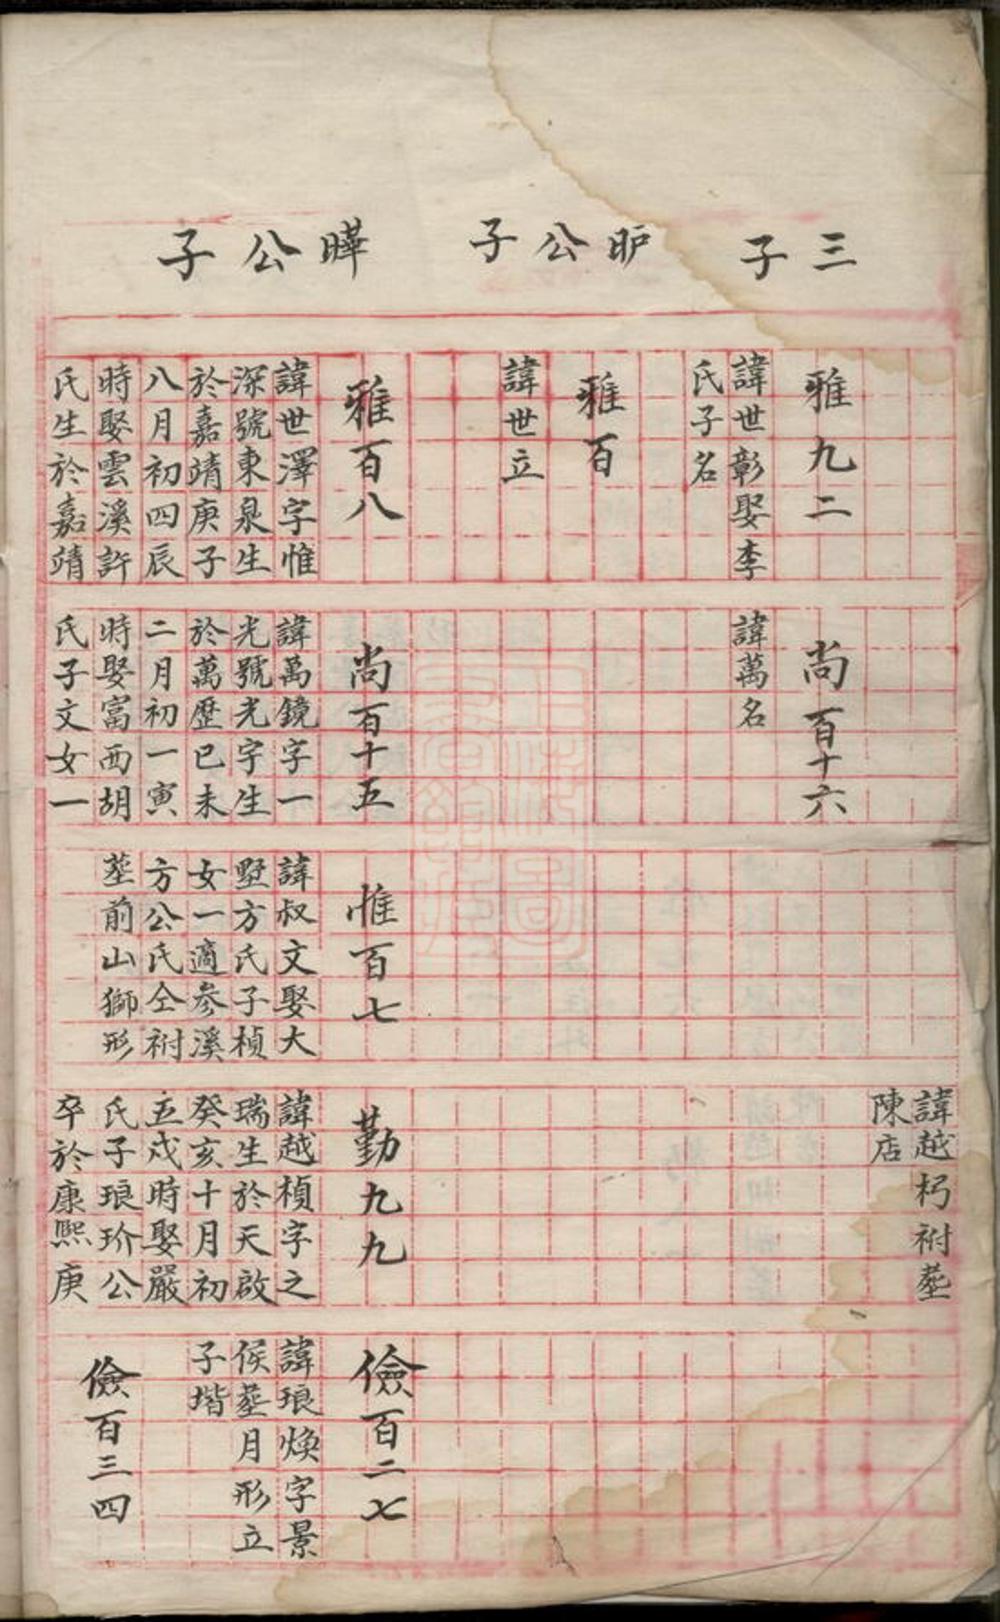 三子
昈公子
曄公子
雅九二
諱世彰娶李
氏子名
雅百
諱世立
雅百八
諱世澤字惟
深號東泉生
於嘉靖庚子
八月初四辰
時娶雲溪許
氏生於嘉靖
尚百十六
諱萬名
尚百十五
諱萬鏡字一
光號光宇生
於萬歷已未
二月初一寅
時娶富西胡
氏子文女一
惟百七
諱叔文娶大
墅方氏子楨
女一適參溪
方公氏仝祔
塟前山獅形
諱越杇祔塟
陳店
勤九九
諱越楨字之
瑞生於天啟
癸亥十月初
五戍時娶嚴
氏子琅玠公
卒於康熙庚
儉百二七
諱琅煥字景
侯塟月形立
子堦
儉百三四